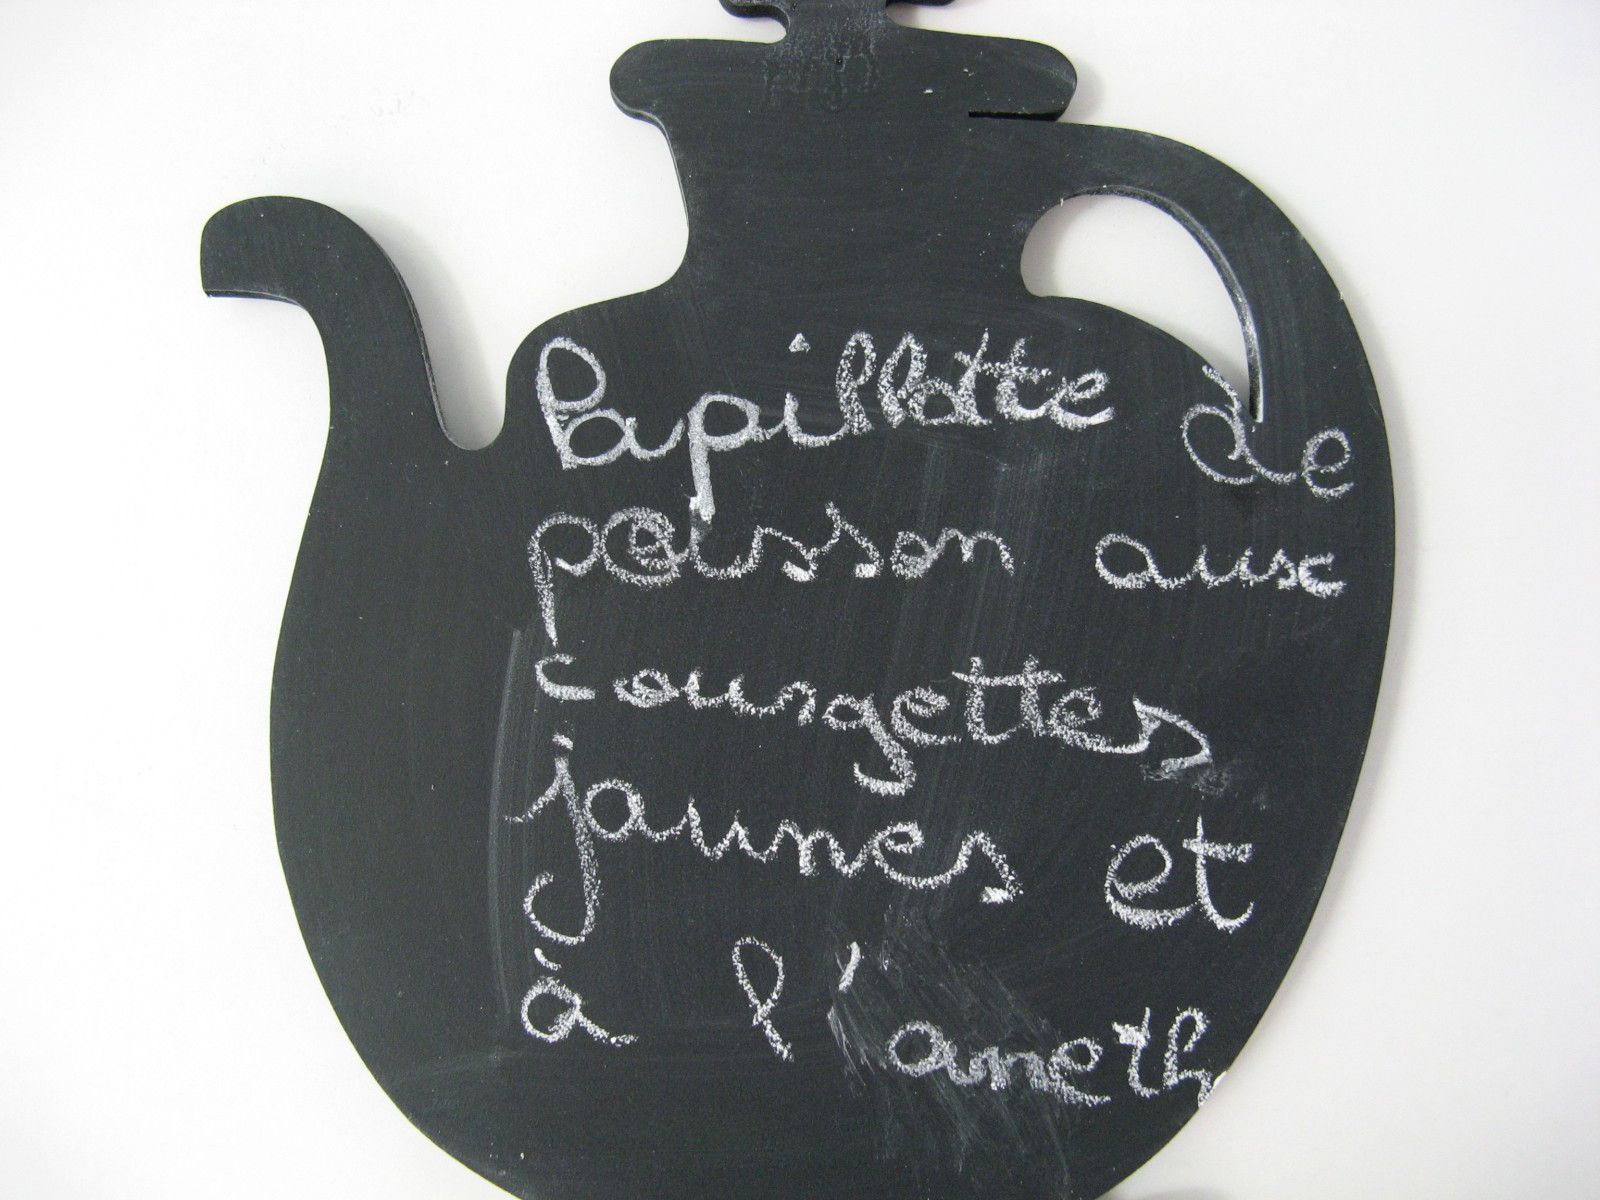 Papillotte de
poisson aux
courgettes
jaunes et
à l'aneth